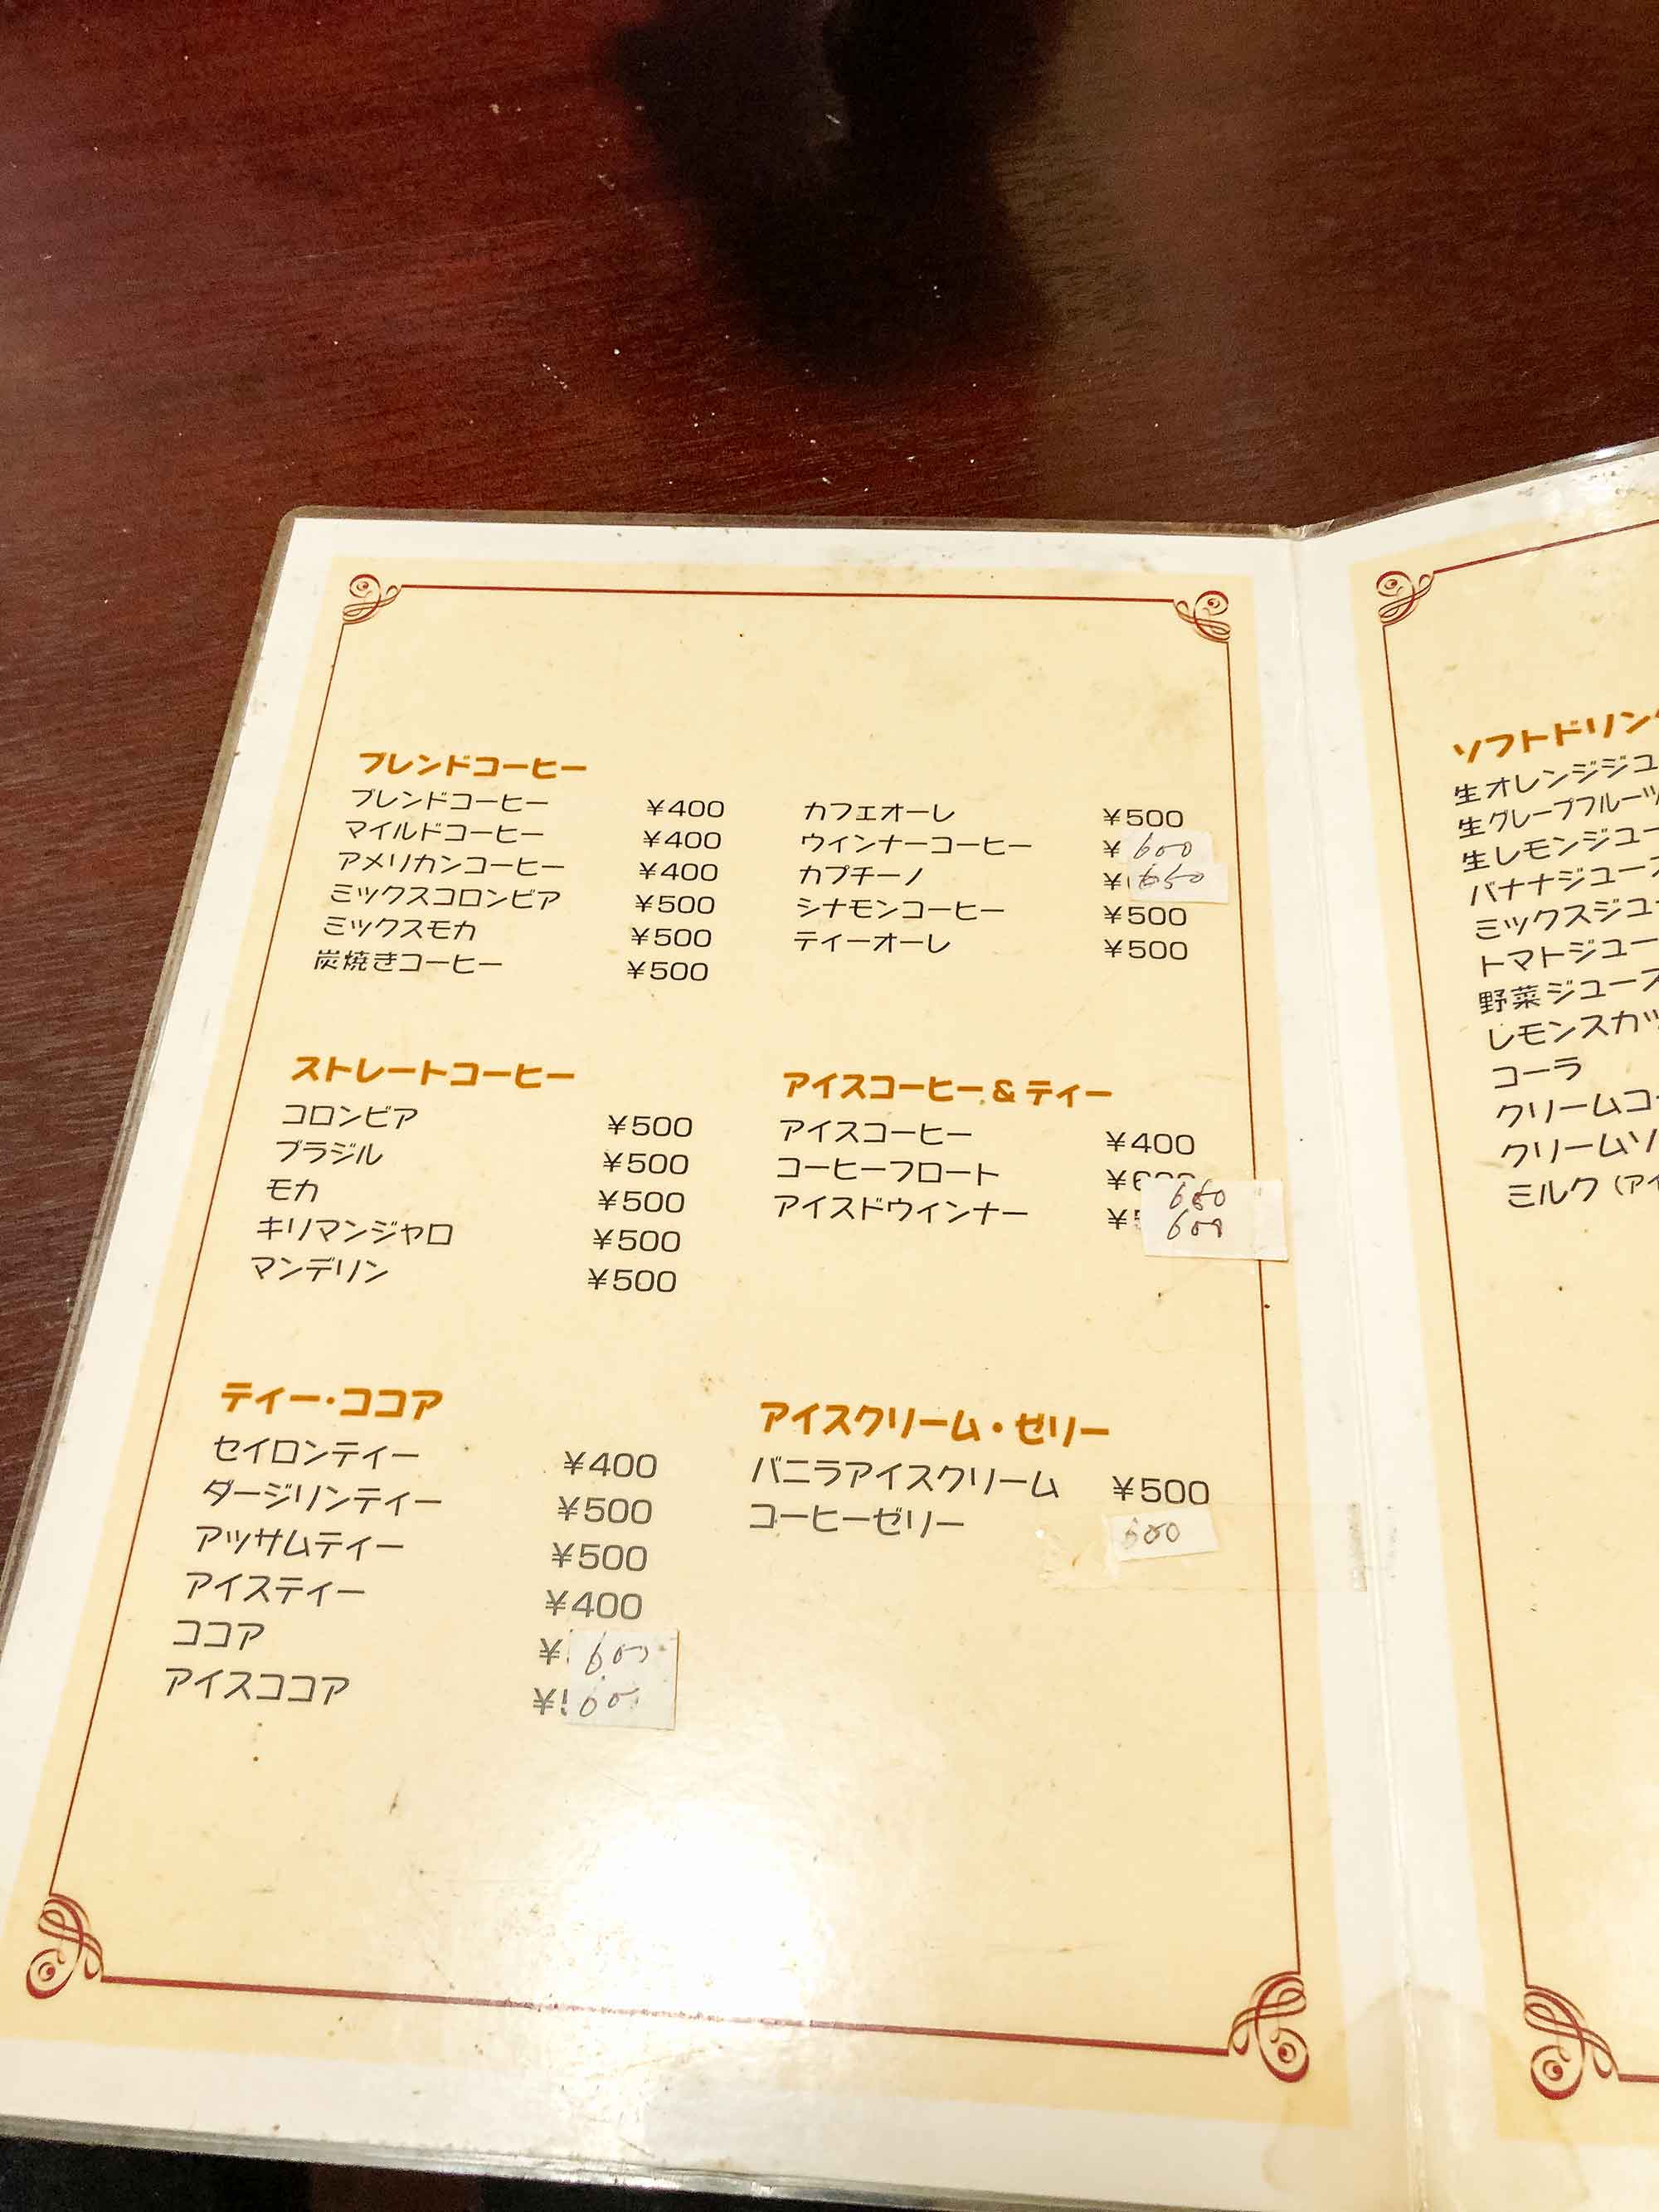 ブレンドコーヒー
ブレンドコーヒー ¥400
マイルドコーヒー ¥400
アメリカンコーヒー ¥400
ミックスコロンビア ¥500
ミックスモカ ¥500
炭焼きコーヒー ¥500
カフェオーレ ¥500
ウインナーコーヒー ¥600
カプチーノ ¥
シナモンコーヒー ¥500
ティーオーレ ¥500
ストレートコーヒー
コロンビア ¥500
ブラジル ¥500
モカ ¥500
キリマンジャロ ¥500
マンデリン ¥500
アイスコーヒー&ティー
アイスコーヒー ¥400
コーヒーフロート ¥
アイスドウィンナー ¥ 600
ティー・ココア
セイロンティー ¥400
ダージリンティー ¥500
アッサムティー ¥500
アイスティー ¥400
ココア ¥ 600
アイスココア ¥
アイスクリーム・ゼリー
バニラアイスクリーム ¥500
コーヒーゼリー 600
ソフトドリン
生オレンジジュ
生グレープフルーツ
生レモンジュー
バナナジュース
ミックスジュー
トマトジュー
野菜ジュース
レモンスカッ
コーラ
クリームコー
クリームソ
ミルク(アイ